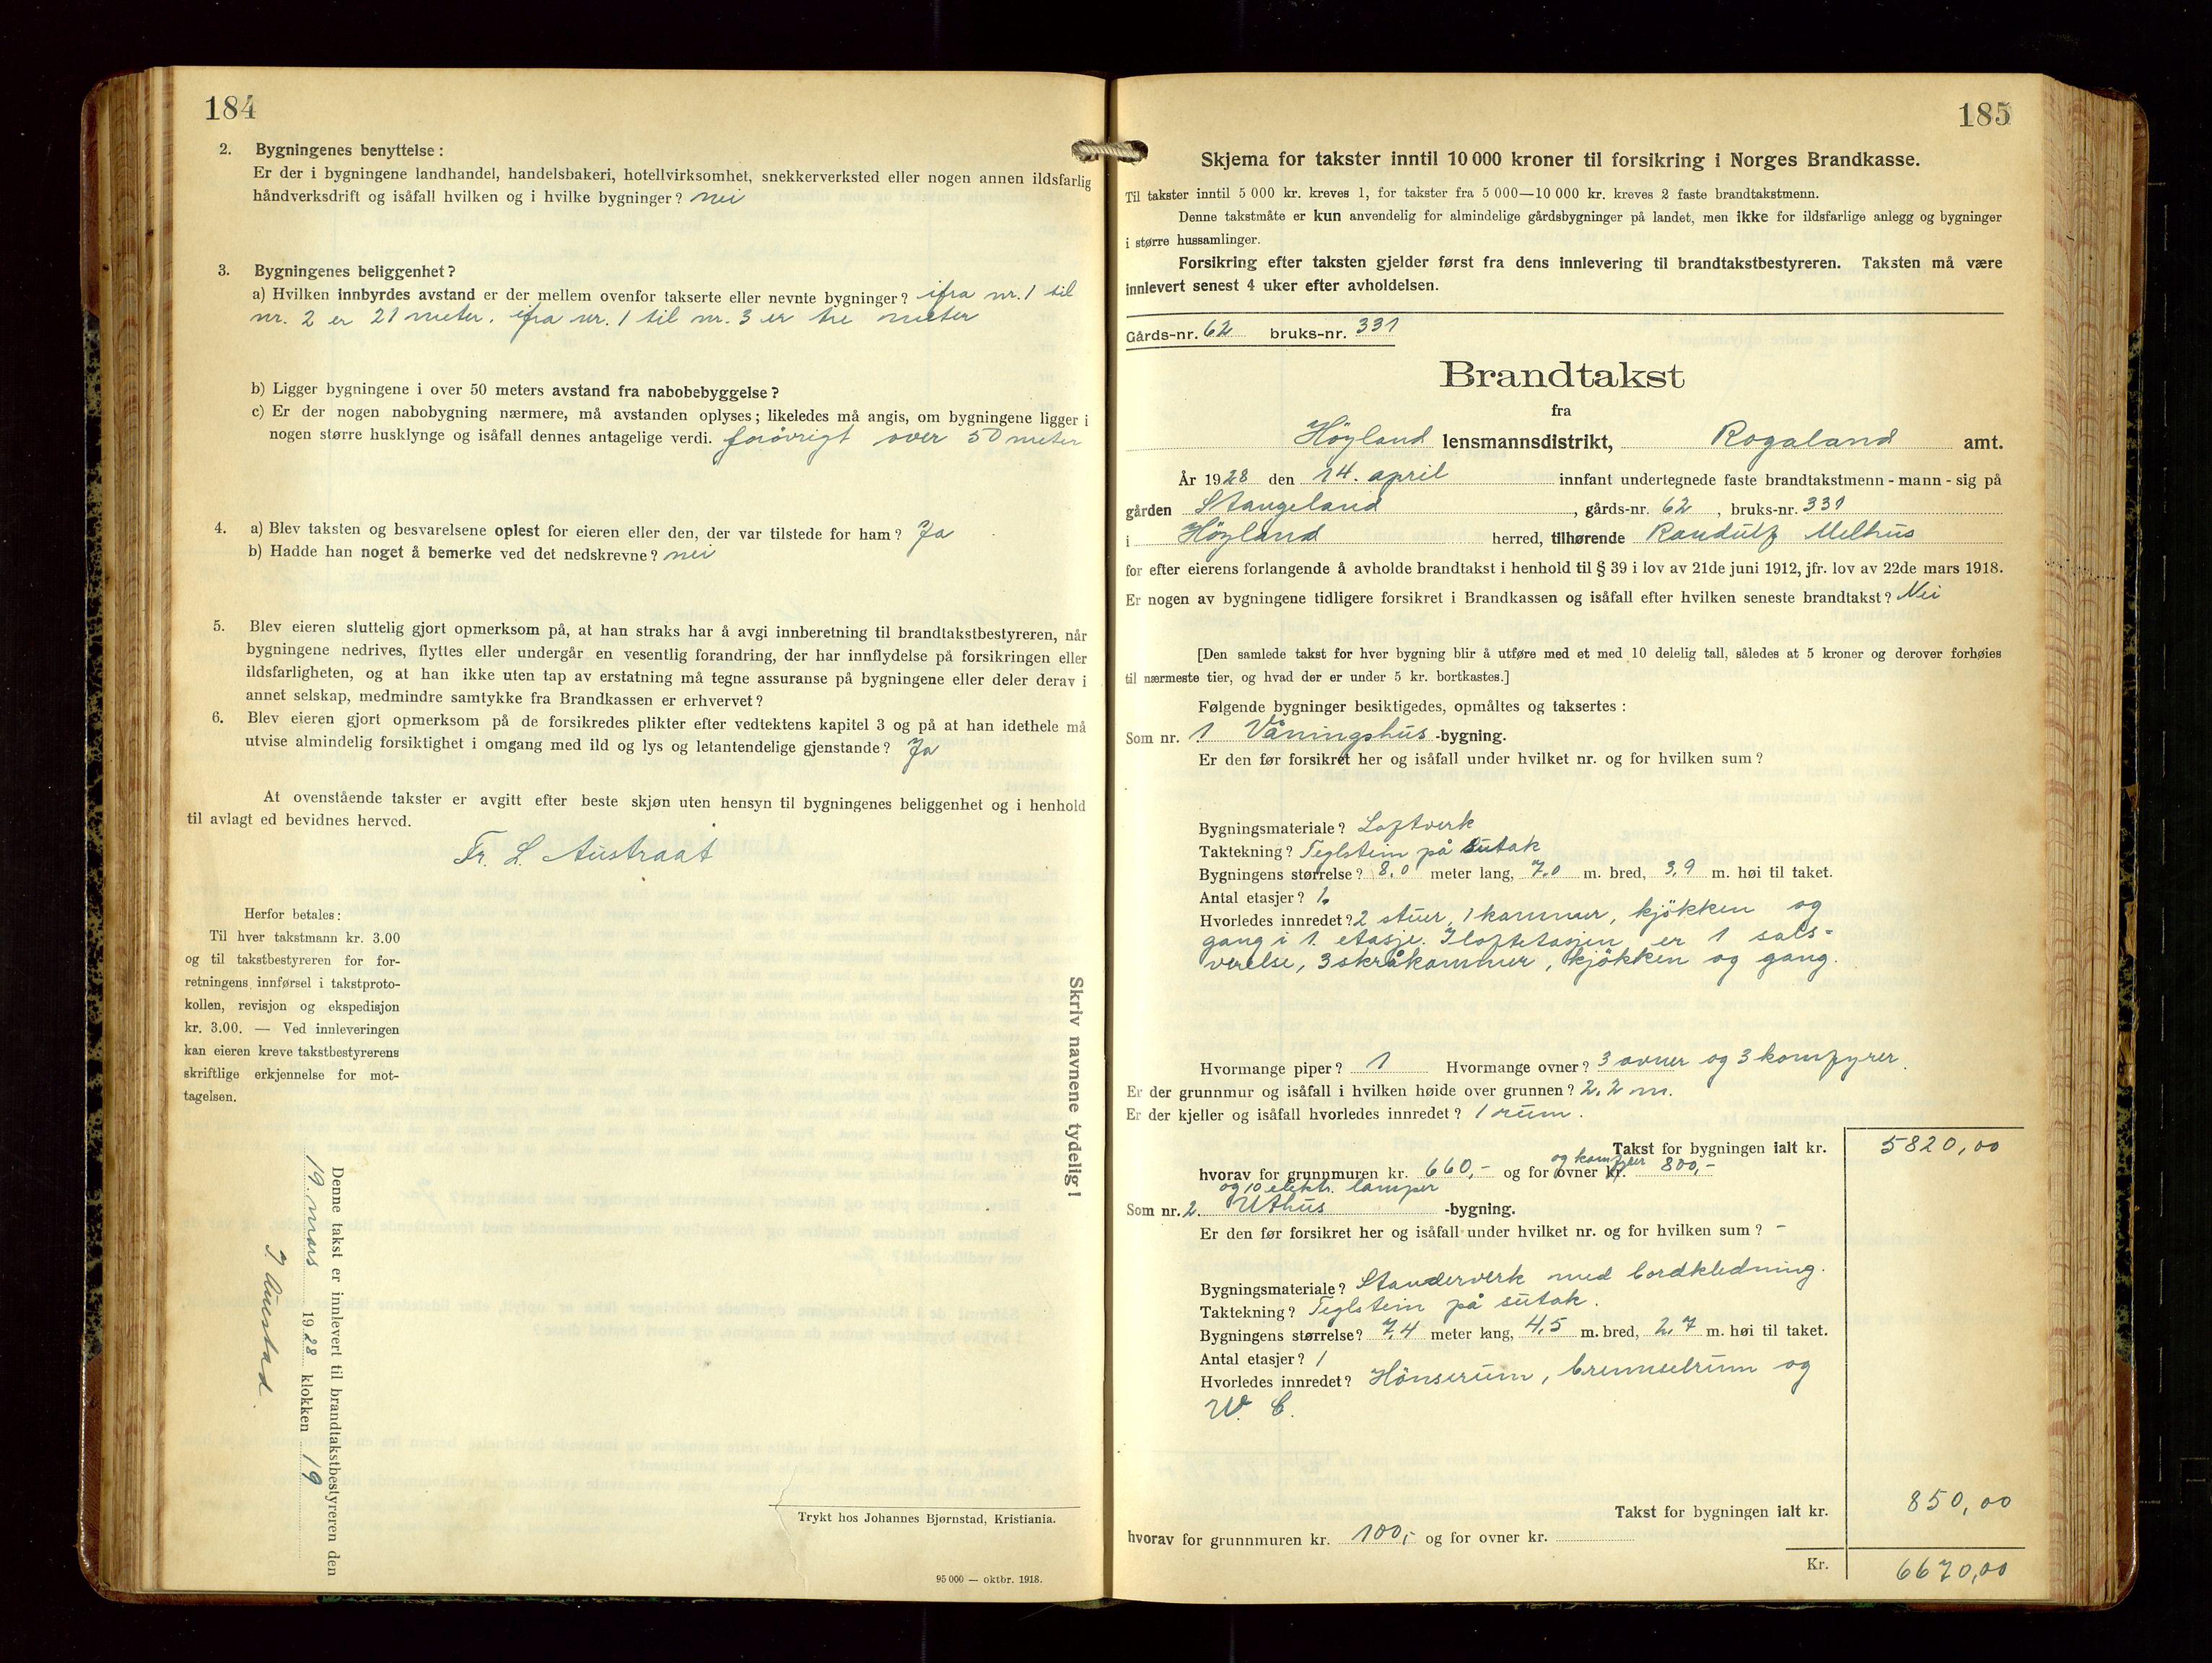 184
2. Bygningenes benyttelse :
Er der i bygningene landhandel, handelsbakeri, hotellvirksomhet, snekkerverksted eller nogen annen ildsfarlig
håndverksdrift og isåfall hvilken og i hvilke bygninger? nei
3. Bygningenes beliggenhet?
a) Hvilken innbyrdes avstand er der mellem ovenfor takserte eller nevnte bygninger? ifra nr. 1 til
nr. 2 er 21 meter. ifra nr. 1 til nr. 3 er tre meter
b) Ligger bygningene i over 50 meters avstand fra nabobebyggelse?
c) Er der nogen nabobygning nærmere, må avstanden oplyses; likeledes må angis, om bygningene ligger i
nogen større husklynge og isåfall dennes antagelige verdi. forövrigt over 50 meter
4. a) Blev taksten og besvarelsene oplest for eieren eller den, der var tilstede for ham? Ja
b) Hadde han noget å bemerke ved det nedskrevne? nei
5. Blev eieren sluttelig gjort opmerksom på, at han straks har å avgi innberetning til brandtakstbestyreren, når
bygningene nedrives, flyttes eller undergår en vesentlig forandring, der har innflydelse på forsikringen eller
ildsfarligheten, og at han ikke uten tap av erstatning må tegne assuranse på bygningene eller deler derav i
annet selskap, medmindre samtykke fra Brandkassen er erhvervet?
6. Blev eieren gjort opmerksom på de forsikredes plikter efter vedtektens kapitel 3 og på at han idethele må
utvise almindelig forsiktighet i omgang med ild og lys og letantendelige gjenstande? Ja
At ovenstående takster er avgitt efter beste skjøn uten hensyn til bygningenes beliggenhet og i henhold
til avlagt ed bevidnes herved.
Fr. L. Austraat
Herfor betales:
Til hver takstmann kr. 3.00
og til takstbestyreren for for-
retningens innførsel i takstproto-
kollen, revisjon og ekspedisjon
kr. 3.00. — Ved innleveringen
kan eieren kreve takstbestyrerens
skriftlige erkjennelse for mot-
tagelsen.
Skriv navnene tydelig!
Denne takst er innlevert til brandtakstbestyreren den
19 mars 1928 klokken 19
Trykt hos Johannes Bjørnstad, Kristiania.
95 000 — oktbr. 1918.
185
Skjema for takster inntil 10 000 kroner til forsikring i Norges Brandkasse.
Til takster inntil 5 000 kr. kreves 1, for takster fra 5 000—10 000 kr. kreves 2 faste brandtakstmenn.
Denne takstmåte er kun anvendelig for almindelige gårdsbygninger på landet, men ikke for ildsfarlige anlegg og bygninger
i større hussamlinger.
Forsikring efter taksten gjelder først fra dens innlevering til brandtakstbestyreren. Taksten må være
innlevert senest 4 uker efter avholdelsen.
Gårds-nr. 62 bruks-nr. 331
Brandtakst
fra
Höyland lensmannsdistrikt, Rogaland amt.
År 1928 den 14. april innfant undertegnede faste brandtakstmenn - mann - sig på
gården Stangeland, gårds-nr. 62, bruks-nr. 331
i Höyland herred, tilhørende Randulf Melhus
for efter eierens forlangende å avholde brandtakst i henhold til § 39 i lov av 21de juni 1912, jfr. lov av 22de mars 1918.
Er nogen av bygningene tidligere forsikret i Brandkassen og isåfall efter hvilken seneste brandtakst? Nei
[Den samlede takst for hver bygning blir å utføre med et med 10 delelig tall, således at 5 kroner og derover forhøies
til nærmeste tier, og hvad der er under 5 kr. bortkastes.]
Følgende bygninger besiktigedes, opmåltes og taksertes :
Som nr. 1 Våningshus -bygning.
Er den før forsikret her og isåfall under hvilket nr. og for hvilken sum?
Bygningsmateriale? Loftverk
Taktekning? Teglstein på sutak
Bygningens størrelse? 8,0 meter lang, 7,0 m. bred, 3,9 m. høi til taket.
Antal etasjer? 1
Hvorledes innredet? 2 stuer, 1 kammer, kjökken og
gang i 1. etasje. I loftetasjen er 1 sals-
verelse, 3 skråkammer, kjökken og gang.
Hvormange piper? 1 Hvormange ovner? 3 ovner og 3 komfyrer.
Er der grunnmur og isåfall i hvilken høide over grunnen? 2,2 m.
Er der kjeller og isåfall hvorledes innredet? 1 rum.
Takst for bygningen ialt kr. 5820,00
og komfyrer
hvorav for grunnmuren kr. 660,- og for ovner kr. 800,-
og 10 elektr. lamper
Som nr. 2. Uthus -bygning.
Er den før forsikret her og isåfall under hvilket nr. og for hvilken sum? -
Bygningsmateriale? Standerverk med bordkledning.
Taktekning? Teglstein på sutak.
Bygningens størrelse? 7,4 meter lang, 4,5 m. bred, 2,7 m. høi til taket.
Antal etasjer? 1
Hvorledes innredet? Hönserum, brenselrum og
W. C.
Takst for bygningen ialt kr. 850,00
hvorav for grunnmuren kr. 100,- og for ovner kr.
Kr. 6670,00